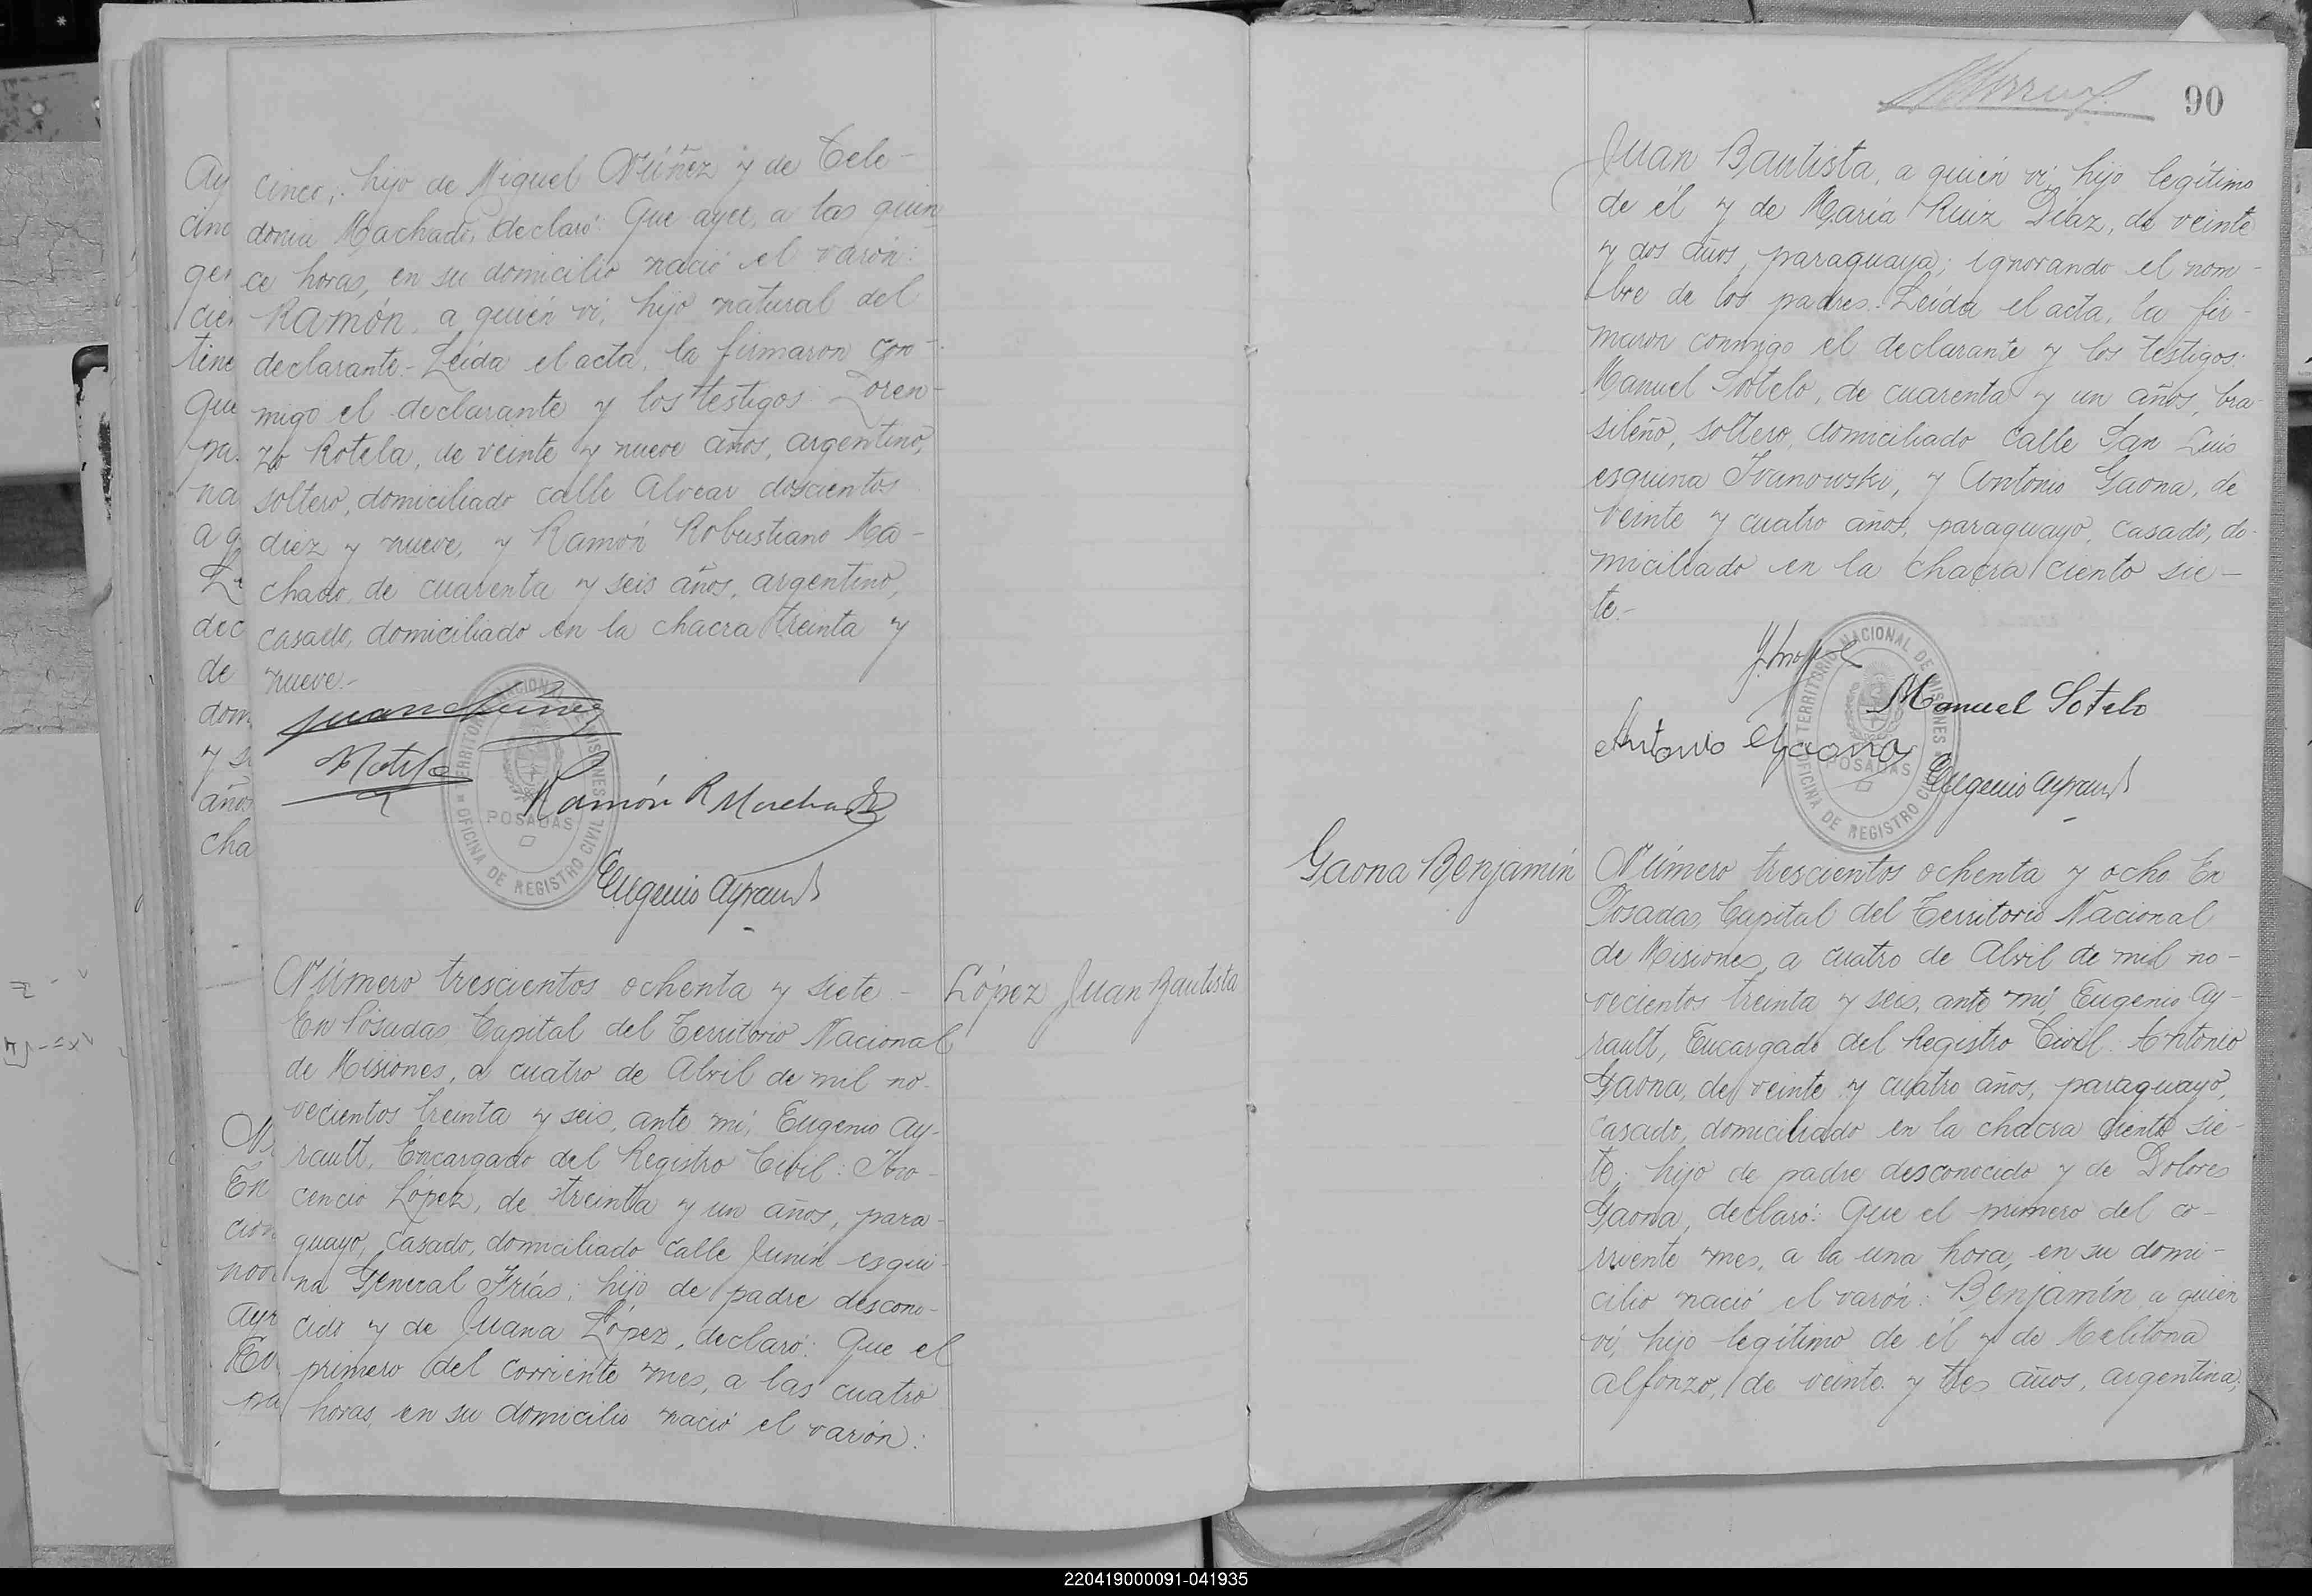 cinco; hijo de Miguel Núñez y de Cele-
donia Machado, declaró: Que ayer, a las quin
ce horas, en su domicilio nació el varón:
Ramón, a quién ví, hijo natural del
declarante.- Leída el acta, la firmaron con-
migo el declarante y los testigos: Loren-
zo Rotela, de veinte y nueve años, argentino,
soltero, domiciliado calle Alvear doscientos
diez y nueve, y Ramón Robustiano Ma-
chado, de cuarenta y seis años, argentino,
casado, domiciliado en la chacra treinta y
nueve.-
Juan Núñez
Rotela
Ramón R Machado
Eugenio Ayrault
TERRITORIO NACIONAL DE MISIONES
OFICINA DE REGISTRO CIVIL
POSADAS
López Juan Bautista
Número trescientos ochenta y siete -
En Posadas Capital del Territorio Nacional
de Misiones, a cuatro de Abril de mil no-
vecientos treinta y seis, ante mí, Eugenio Ay-
rault, Encargado del Registro Civil: Ino-
cencio López, de treinta y un años, para-
guayo, casado, domiciliado calle Junín esqui-
na General Frías; hijo de padre descono-
cido y de Juana López, declaró: Que el
primero del corriente mes, a las cuatro
horas, en su domicilio nació el varón:
90
Juan Bautista, a quién ví, hijo legítimo
de él y de María Ruiz Díaz, de veinte
y dos años, paraguaya; ignorando el nom-
bre de los padres. Leída el acta, la fir-
maron conmigo el declarante y los testigos:
Manuel Sotelo, de cuarenta y un años, bra-
sileño, soltero, domiciliado calle San Luis
esquina Ivanowski, y Antonio Gaona, de
veinte y cuatro años, paraguayo, casado, do-
miciliado en la chacra ciento sie-
te.-
Manuel Sotelo
Antonio Gaona
Eugenio Ayrault
TERRITORIO NACIONAL DE MISIONES
OFICINA DE REGISTRO CIVIL
POSADAS
Gaona Benjamín
Número trescientos ochenta y ocho En
Posadas, Capital del Territorio Nacional
de Misiones, a cuatro de Abril de mil no-
vecientos treinta y seis, ante mí, Eugenio Ay-
rault, Encargado del Registro Civil: Antonio
Gaona, de veinte y cuatro años, paraguayo,
casado, domiciliado en la chacra ciento sie-
te; hijo de padre desconocido y de Dolores
Gaona, declaró: Que el primero del co-
rriente mes, a la una hora, en su domi-
cilio nació el varón: Benjamín, a quién
ví, hijo legítimo de él y de Melitona
Alfonzo, de veinte y tres años, argentina,
220419000091-041935